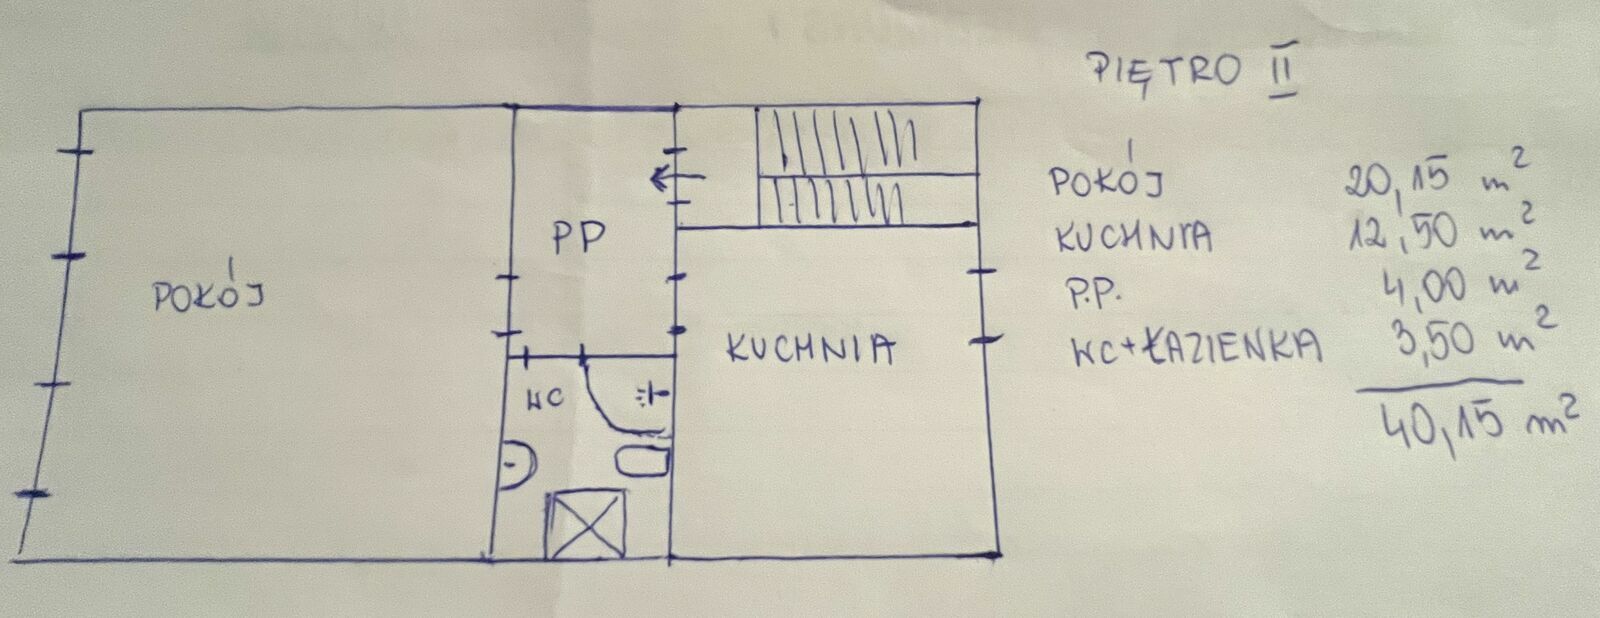 PIĘTRO II
POKÓJ 20,15 m²
KUCHNIA 12,50 m²
P.P. 4,00 m²
WC+ŁAZIENKA 3,50 m²
40,15 m²
PP
POKÓJ
KUCHNIA
WC